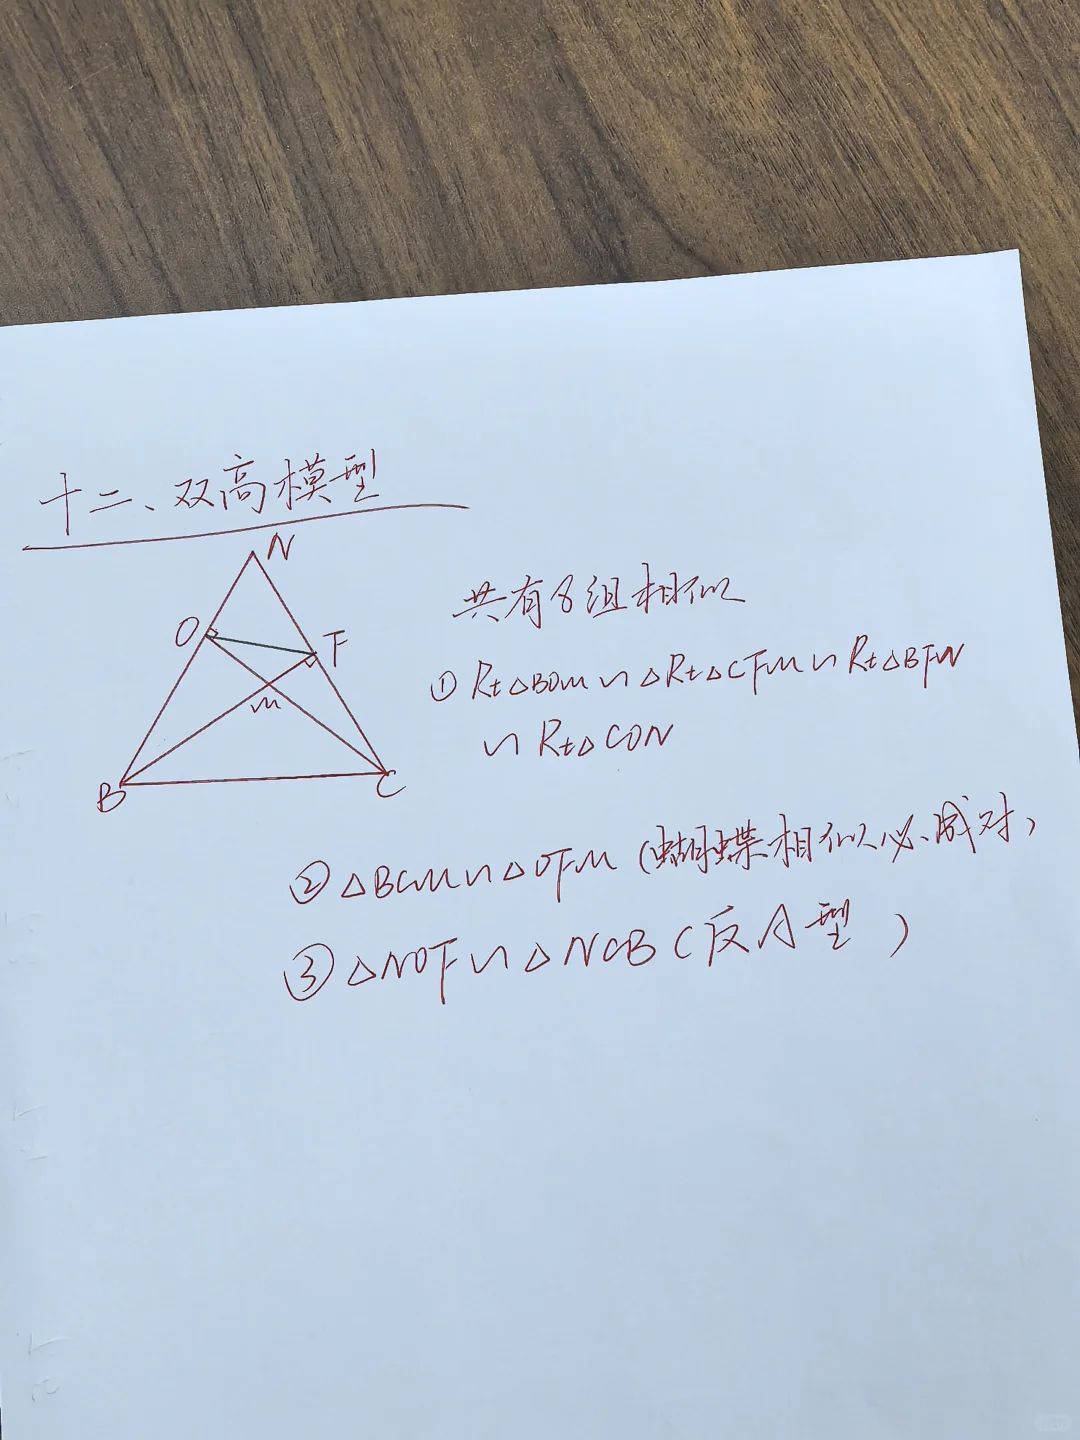 十二、双高模型
N
O
F
M
B
C
共有8组相似
① Rt△BOM∽△Rt△CFM∽Rt△BFN
∽Rt△CON
② △BCM∽△OFM(蝴蝶相似必成对)
③ △NOF∽△NCB(反A型)